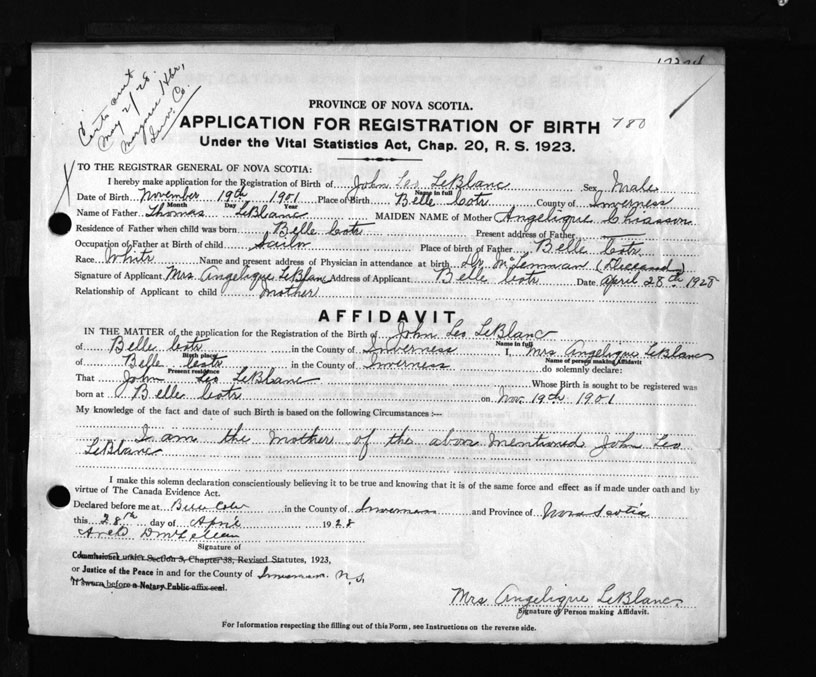 May 2/28.
Margaree Hbr,
Inv. Co.
PROVINCE OF NOVA SCOTIA.
APPLICATION FOR REGISTRATION OF BIRTH 780
Under the Vital Statistics Act, Chap. 20, R. S. 1923.
TO THE REGISTRAR GENERAL OF NOVA SCOTIA:
I hereby make application for the Registration of Birth of John Leo LeBlanc Sex Male
Name in full
Date of Birth November 19th 1901 Place of Birth Belle Cote County of Inverness
Month Day Year
Name of Father Thomas LeBlanc MAIDEN NAME of Mother Angelique Chiasson
Residence of Father when child was born Belle Cote Present address of Father —
Occupation of Father at Birth of child Sailor Place of birth of Father Belle Cote
Race White Name and present address of Physician in attendance at birth Dr McLennan (Deceased)
Signature of Applicant Mrs. Angelique LeBlanc Address of Applicant Belle Cote Date April 28th 1928
Relationship of Applicant to child Mother
AFFIDAVIT
IN THE MATTER of the application for the Registration of the Birth of John Leo LeBlanc
Name in full
of Belle Cote in the County of Inverness I, Mrs Angelique LeBlanc
Birth place Name of person making Affidavit
of Belle Cote in the County of Inverness do solemnly declare:
Present residence
That John Leo LeBlanc Whose Birth is sought to be registered was
born at Belle Cote on Nov. 19th 1901
My knowledge of the fact and date of such Birth is based on the following Circumstances :—
I am the Mother of the above Mentioned John Leo
LeBlanc
I make this solemn declaration conscientiously believing it to be true and knowing that it is of the same force and effect as if made under oath and by
virtue of The Canada Evidence Act.
Declared before me at Belle Cote in the County of Inverness and Province of Nova Scotia
this 28th day of April 1928
Signature of
Commissioner under Section 3, Chapter 38, Revised Statutes, 1923,
or Justice of the Peace in and for the County of Inverness N.S.
If sworn before a Notary Public affix seal.
Mrs Angelique LeBlanc
Signature of Person making Affidavit.
For Information respecting the filling out of this Form, see Instructions on the reverse side.